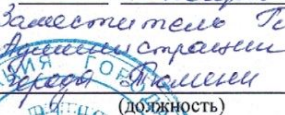 Заместитель Г
Администрации
города Тюмени
(должность)